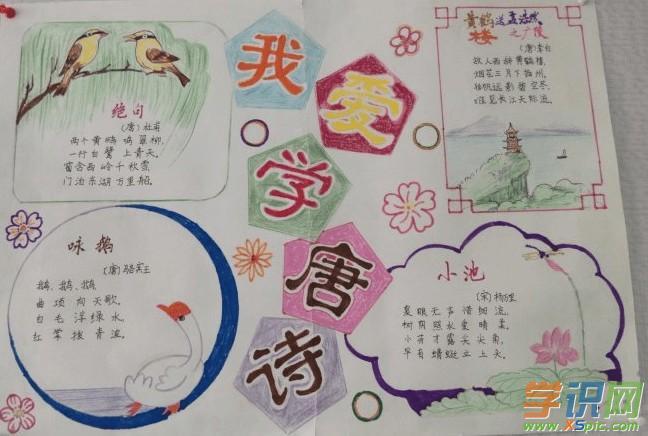 我爱学唐诗
绝句
（唐）杜甫
两个黄鹂鸣翠柳，
一行白鹭上青天。
窗含西岭千秋雪，
门泊东湖万里船。
黄鹤送孟浩然
楼之广陵
（唐）李白
故人西辞黄鹤楼，
烟花三月下扬州。
孤帆远影碧空尽，
唯见长江天际流。
咏鹅
（唐）骆宾王
鹅、鹅、鹅，
曲项向天歌。
白毛浮绿水，
红掌拨青波。
小池
（宋）杨万里
泉眼无声惜细流，
树阴照水爱晴柔。
小荷才露尖尖角，
早有蜻蜓立上头。
学识网
www.XSpic.com